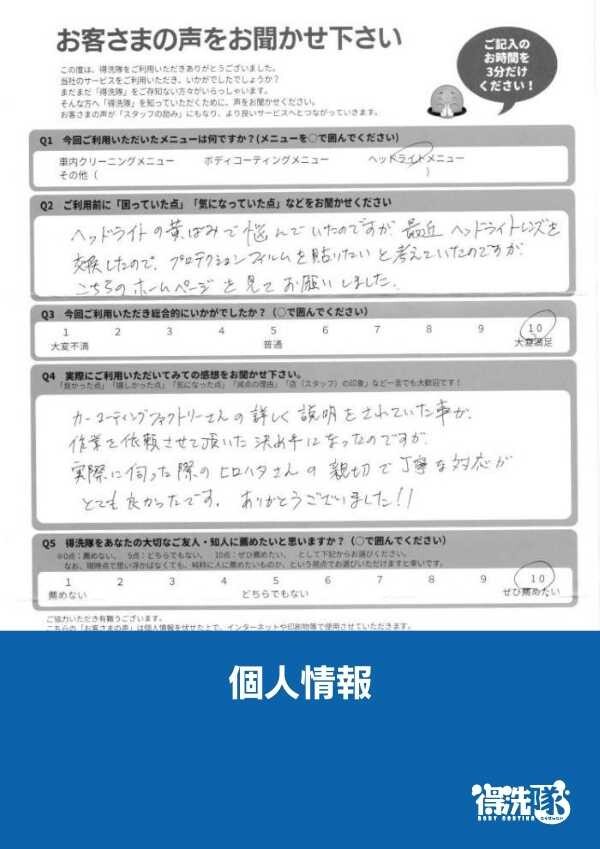 お客さまの声をお聞かせ下さい
ご記入の
お時間を
3分だけ
ください!
この度は、得洗隊をご利用いただきありがとうございました。
当社のサービスをご利用いただき、いかがでしたでしょうか?
まだまだ「得洗隊」をご存知ない方々がいらっしゃいます。
そんな方へ「得洗隊」を知っていただくために、声をお聞かせください。
お客さまの声が「スタッフの励み」にもなり、より良いサービスへとつながっていきます。
Q1 今回ご利用いただいたメニューは何ですか?(メニューを○で囲んでください)
車内クリーニングメニュー ボディコーティングメニュー ヘッドライトメニュー
その他( )
Q2 ご利用前に「困っていた点」「気になっていた点」などをお聞かせください
ヘッドライトの黄ばみで悩んでいたのですが最近ヘッドライトレンズを
交換したので、プロテクションフィルムを貼りたいと考えていたのですが
こちらのホームページを見てお願いしました。
Q3 今回ご利用いただき総合的にいかがでしたか?(○で囲んでください)
1 2 3 4 5 6 7 8 9 10
大変不満 普通 大変満足
Q4 実際にご利用いただいてみての感想をお聞かせ下さい。
「良かった点」「嬉しかった点」「気になった点」「減点の理由」「店(スタッフ)の印象」など一言でも大歓迎です!
カーコーティングファクトリーさんの詳しく説明をされていた事が、
作業を依頼させて頂いた決め手になったのですが、
実際に伺った際のヒロハタさんの親切で丁寧な対応が
とても良かったです。ありがとうございました!!
Q5 得洗隊をあなたの大切なご友人・知人に薦めたいと思いますか?(○で囲んでください)
※0点:薦めない、 5点:どちらでもない、 10点:ぜひ薦めたい、 として下記からお選びください。
なお、現時点で思い浮かばなくても、純粋に人に薦めたいものか、という視点でお選びいただけますと幸いです。
1 2 3 4 5 6 7 8 9 10
薦めない どちらでもない ぜひ薦めたい
ご協力いただき有難うございます。
こちらの「お客さまの声」は個人情報を伏せた上で、インターネットや印刷物等で使用させていただきます。
個人情報
得洗隊
BODY COATING